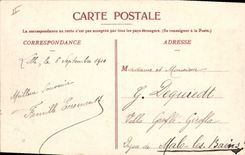 CARTE POSTALE
La correspondance au recto n'est pas acceptée par tous les pays étrangers. (Se renseigner à la Poste.)
CORRESPONDANCE
ADRESSE
le 8 Septembre 1910
Meilleur Souvenir
Famille
Madame et Monsieur
G.
Villa
Digue de Malo-les-Bains